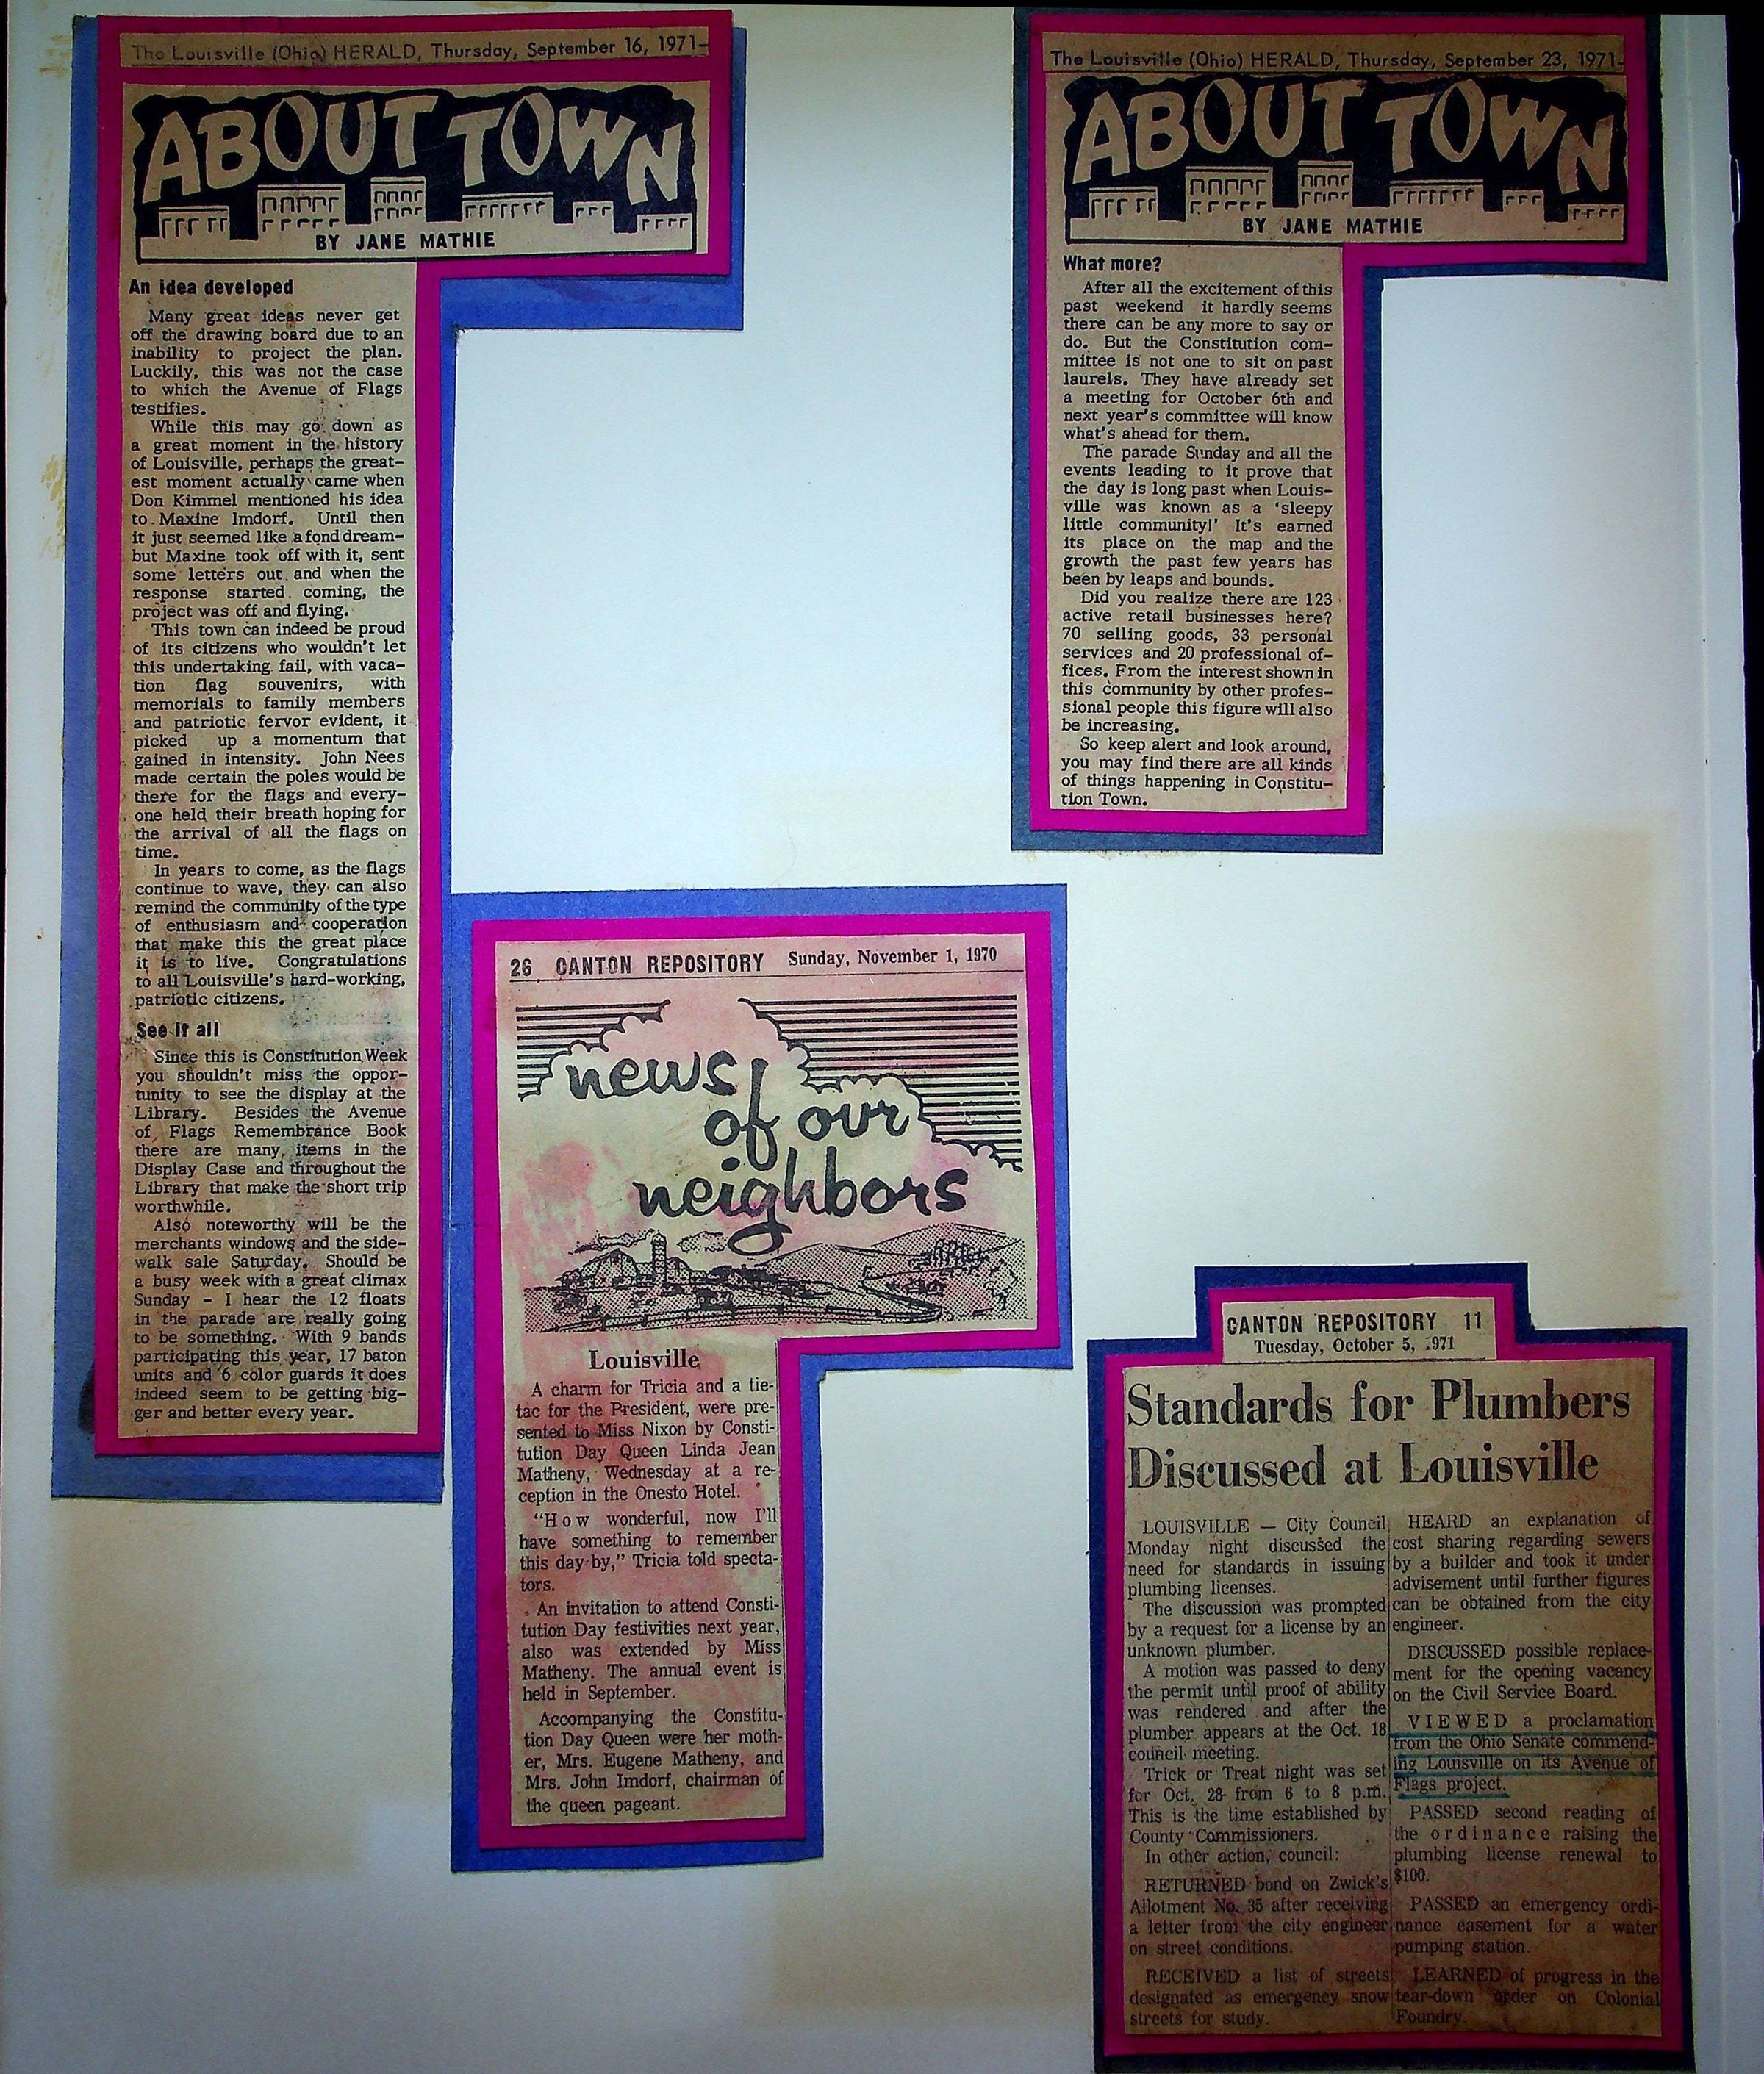 The Louisville (Ohio) HERALD, Thursday, September 16, 1971-
ABOUT TOWN
BY JANE MATHIE
An idea developed
Many great ideas never get
off the drawing board due to an
inability to project the plan.
Luckily, this was not the case
to which the Avenue of Flags
testifies.
While this may go down as
a great moment in the history
of Louisville, perhaps the great-
est moment actually came when
Don Kimmel mentioned his idea
to Maxine Imdorf. Until then
it just seemed like a fond dream-
but Maxine took off with it, sent
some letters out and when the
response started coming, the
project was off and flying.
This town can indeed be proud
of its citizens who wouldn't let
this undertaking fail, with vaca-
tion flag souvenirs, with
memorials to family members
and patriotic fervor evident, it
picked up a momentum that
gained in intensity. John Nees
made certain the poles would be
there for the flags and every-
one held their breath hoping for
the arrival of all the flags on
time.
In years to come, as the flags
continue to wave, they can also
remind the community of the type
of enthusiasm and cooperation
that make this the great place
it is to live. Congratulations
to all Louisville's hard-working,
patriotic citizens.
See it all
Since this is Constitution Week
you shouldn't miss the oppor-
tunity to see the display at the
Library. Besides the Avenue
of Flags Remembrance Book
there are many items in the
Display Case and throughout the
Library that make the short trip
worthwhile.
Also noteworthy will be the
merchants windows and the side-
walk sale Saturday. Should be
a busy week with a great climax
Sunday - I hear the 12 floats
in the parade are really going
to be something. With 9 bands
participating this year, 17 baton
units and 6 color guards it does
indeed seem to be getting big-
ger and better every year.
26 CANTON REPOSITORY Sunday, November 1, 1970
news
of our
neighbors
Louisville
A charm for Tricia and a tie-
tac for the President, were pre-
sented to Miss Nixon by Consti-
tution Day Queen Linda Jean
Matheny, Wednesday at a re-
ception in the Onesto Hotel.
"How wonderful, now I'll
have something to remember
this day by," Tricia told specta-
tors.
An invitation to attend Consti-
tution Day festivities next year,
also was extended by Miss
Matheny. The annual event is
held in September.
Accompanying the Constitu-
tion Day Queen were her moth-
er, Mrs. Eugene Matheny, and
Mrs. John Imdorf, chairman of
the queen pageant.
The Louisville (Ohio) HERALD, Thursday, September 23, 1971-
ABOUT TOWN
BY JANE MATHIE
What more?
After all the excitement of this
past weekend it hardly seems
there can be any more to say or
do. But the Constitution com-
mittee is not one to sit on past
laurels. They have already set
a meeting for October 6th and
next year's committee will know
what's ahead for them.
The parade Sunday and all the
events leading to it prove that
the day is long past when Louis-
ville was known as a 'sleepy
little community!' It's earned
its place on the map and the
growth the past few years has
been by leaps and bounds.
Did you realize there are 123
active retail businesses here?
70 selling goods, 33 personal
services and 20 professional of-
fices. From the interest shown in
this community by other profes-
sional people this figure will also
be increasing.
So keep alert and look around,
you may find there are all kinds
of things happening in Constitu-
tion Town.
CANTON REPOSITORY 11
Tuesday, October 5, 1971
Standards for Plumbers
Discussed at Louisville
LOUISVILLE — City Council
Monday night discussed the
need for standards in issuing
plumbing licenses.
The discussion was prompted
by a request for a license by an
unknown plumber.
A motion was passed to deny
the permit until proof of ability
was rendered and after the
plumber appears at the Oct. 18
council meeting.
Trick or Treat night was set
for Oct. 28 from 6 to 8 p.m.
This is the time established by
County Commissioners.
In other action, council:
RETURNED bond on Zwick's
Allotment No. 35 after receiving
a letter from the city engineer
on street conditions.
RECEIVED a list of streets
designated as emergency snow
streets for study.
HEARD an explanation of
cost sharing regarding sewers
by a builder and took it under
advisement until further figures
can be obtained from the city
engineer.
DISCUSSED possible replace-
ment for the opening vacancy
on the Civil Service Board.
VIEWED a proclamation
from the Ohio Senate commend-
ing Louisville on its Avenue of
Flags project.
PASSED second reading of
the ordinance raising the
plumbing license renewal to
$100.
PASSED an emergency ordi-
nance easement for a water
pumping station.
LEARNED of progress in the
tear-down order on Colonial
Foundry.